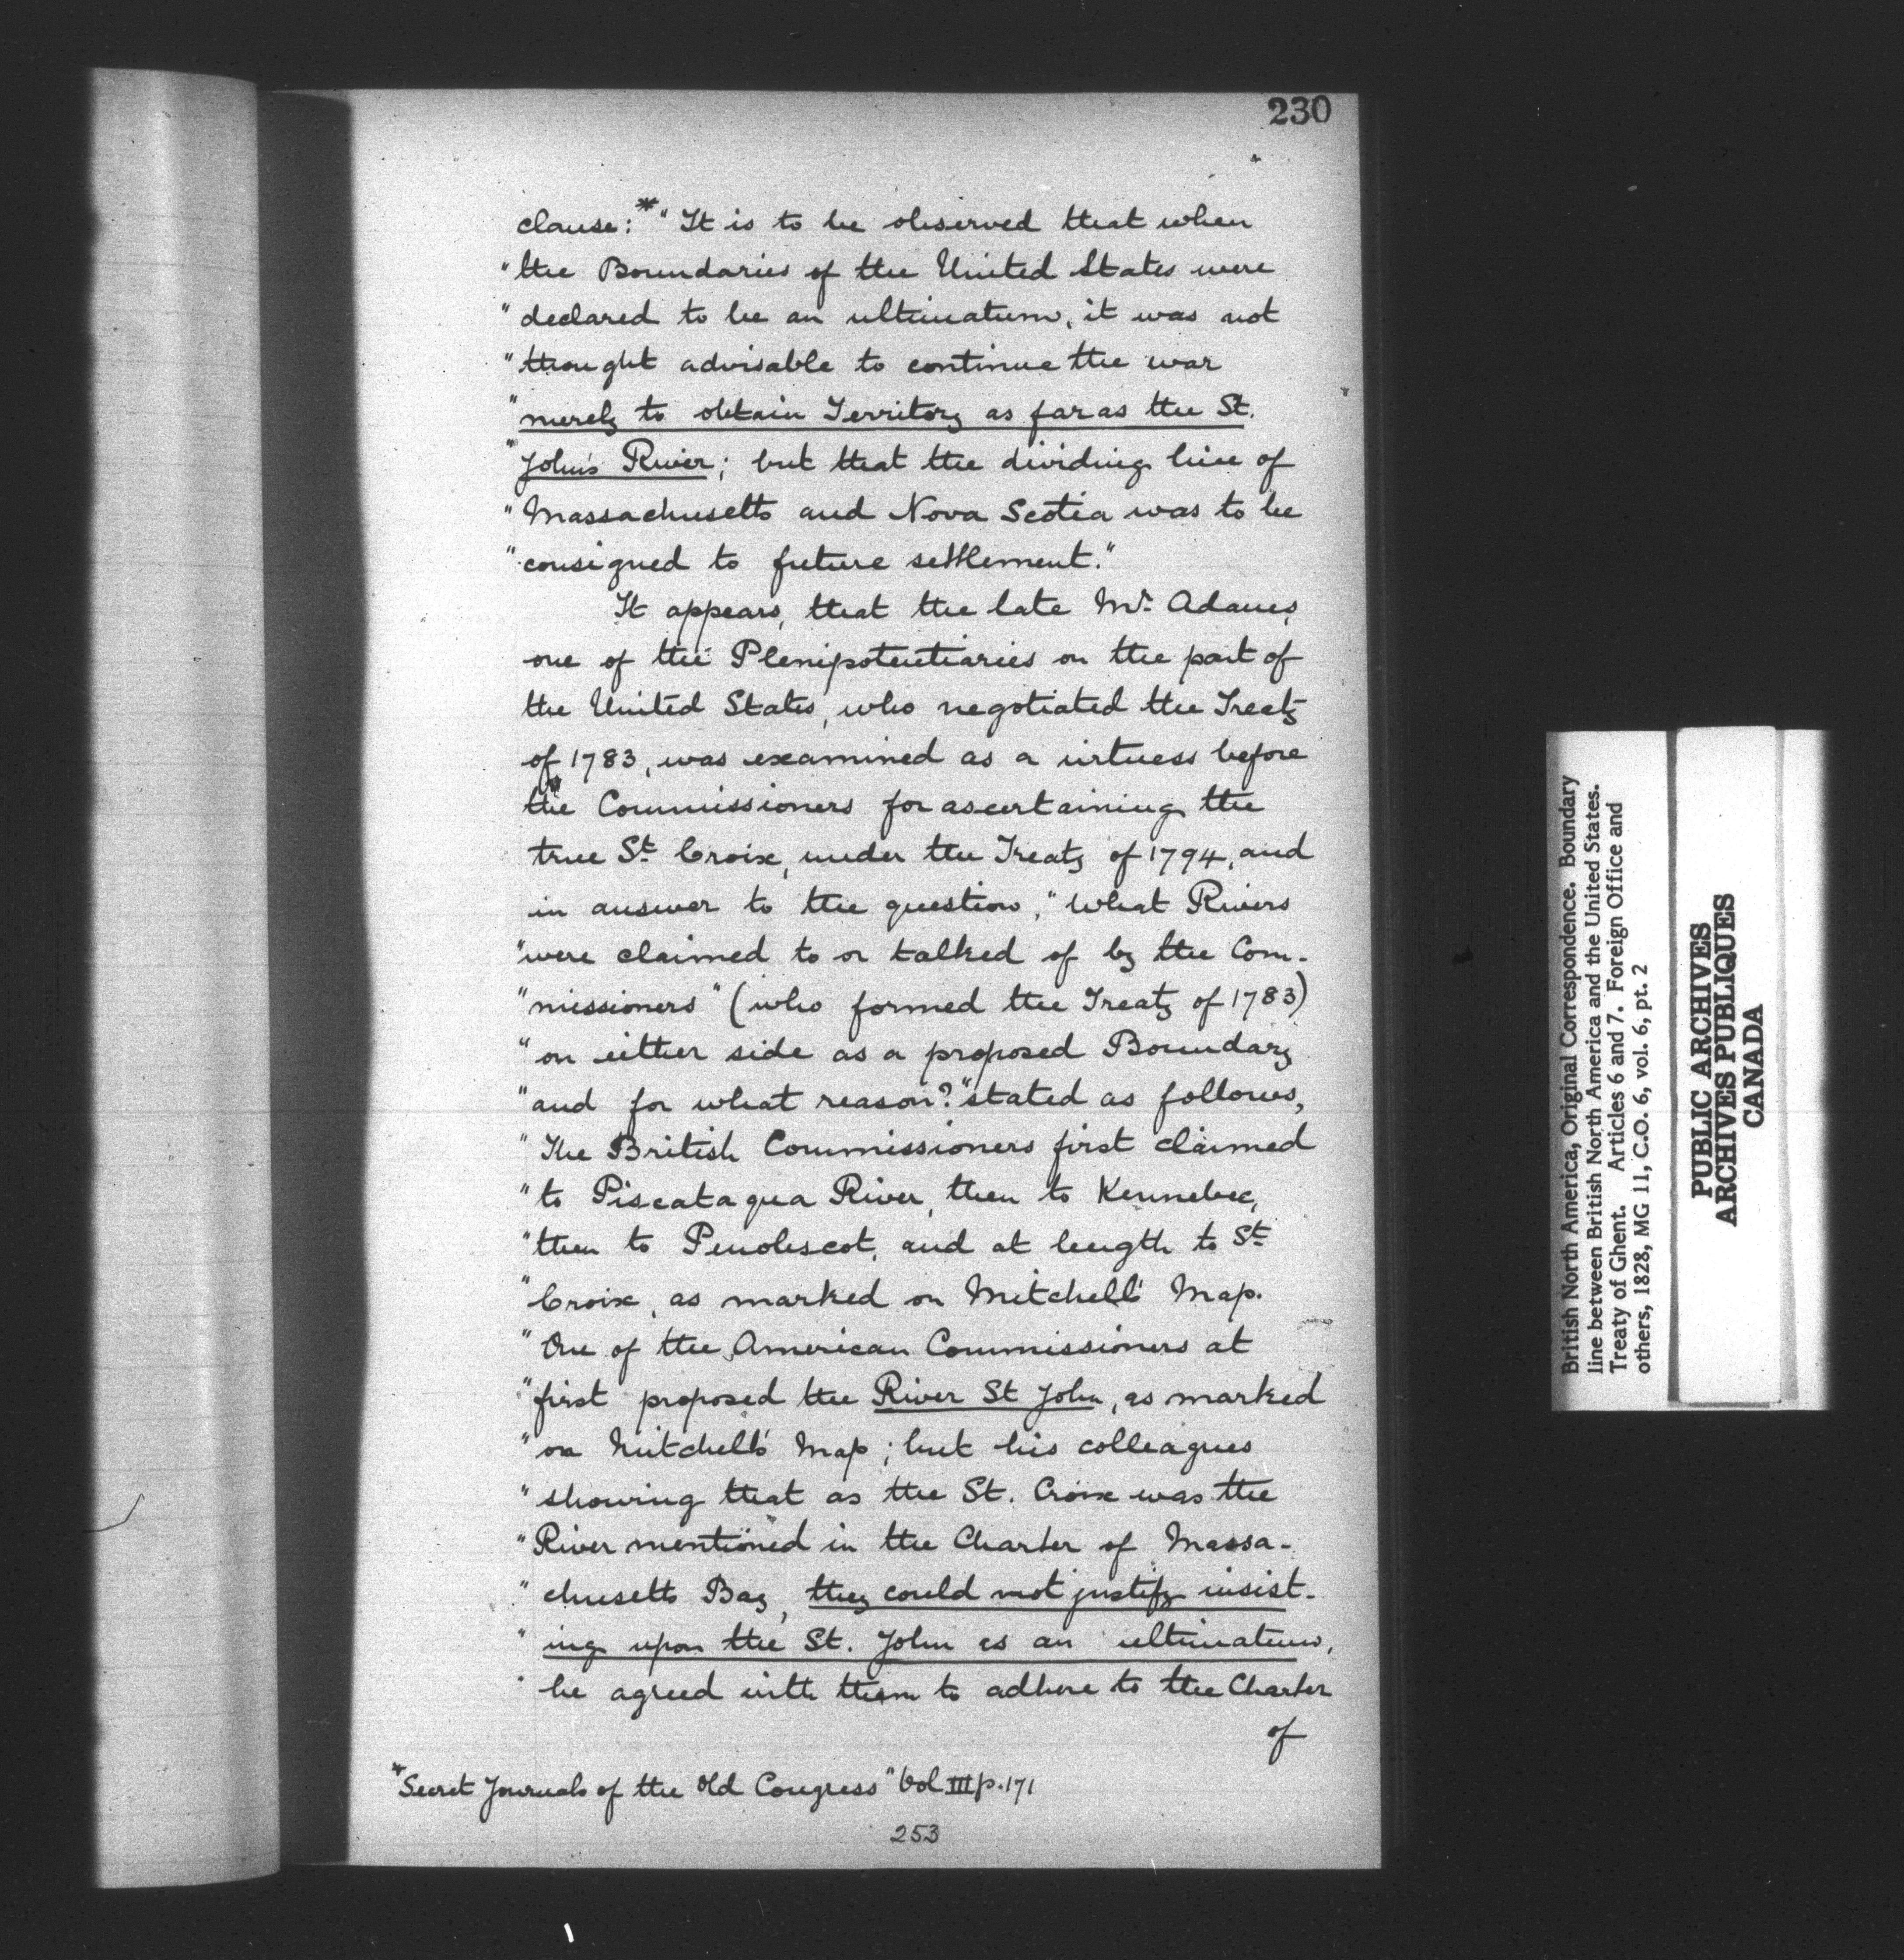 230
clause:* "It is to be observed that when
"the Boundaries of the United States were
"declared to be an ultimatum, it was not
"thought advisable to continue the war
"merely to obtain Territory as far as the St.
"John's River; but that the dividing line of
"Massachusetts and Nova Scotia was to be
"consigned to future settlement."
It appears, that the late Mr. Adams,
one of the Plenipotentiaries on the part of
the United States, who negotiated the Treaty
of 1783, was examined as a witness before
the Commissioners for ascertaining the
true St. Croix, under the Treaty of 1794, and
in answer to the question, "What Rivers
"were claimed to or talked of by the Com-
"missioners" (who formed the Treaty of 1783)
"on either side as a proposed Boundary
"and for what reason?" stated as follows,
"The British Commissioners first claimed
"to Piscataqua River, then to Kennebec,
"then to Penobscot, and at length to St.
"Croix, as marked on Mitchell's Map.
"One of the American Commissioners at
"first proposed the River St John, as marked
"on Mitchell's Map; but his colleagues
"showing that as the St. Croix was the
"River mentioned in the Charter of Massa-
"chusetts Bay, they could not justify insist-
"ing upon the St. John as an ultimatum,
"he agreed with them to adhere to the Charter
of
*"Secret Journals of the Old Congress" Vol III p. 171
253
British North America, Original Correspondence. Boundary
line between British North America and the United States.
Treaty of Ghent. Articles 6 and 7. Foreign Office and
others, 1828, MG 11, C.O. 6, vol. 6, pt. 2
PUBLIC ARCHIVES
ARCHIVES PUBLIQUES
CANADA